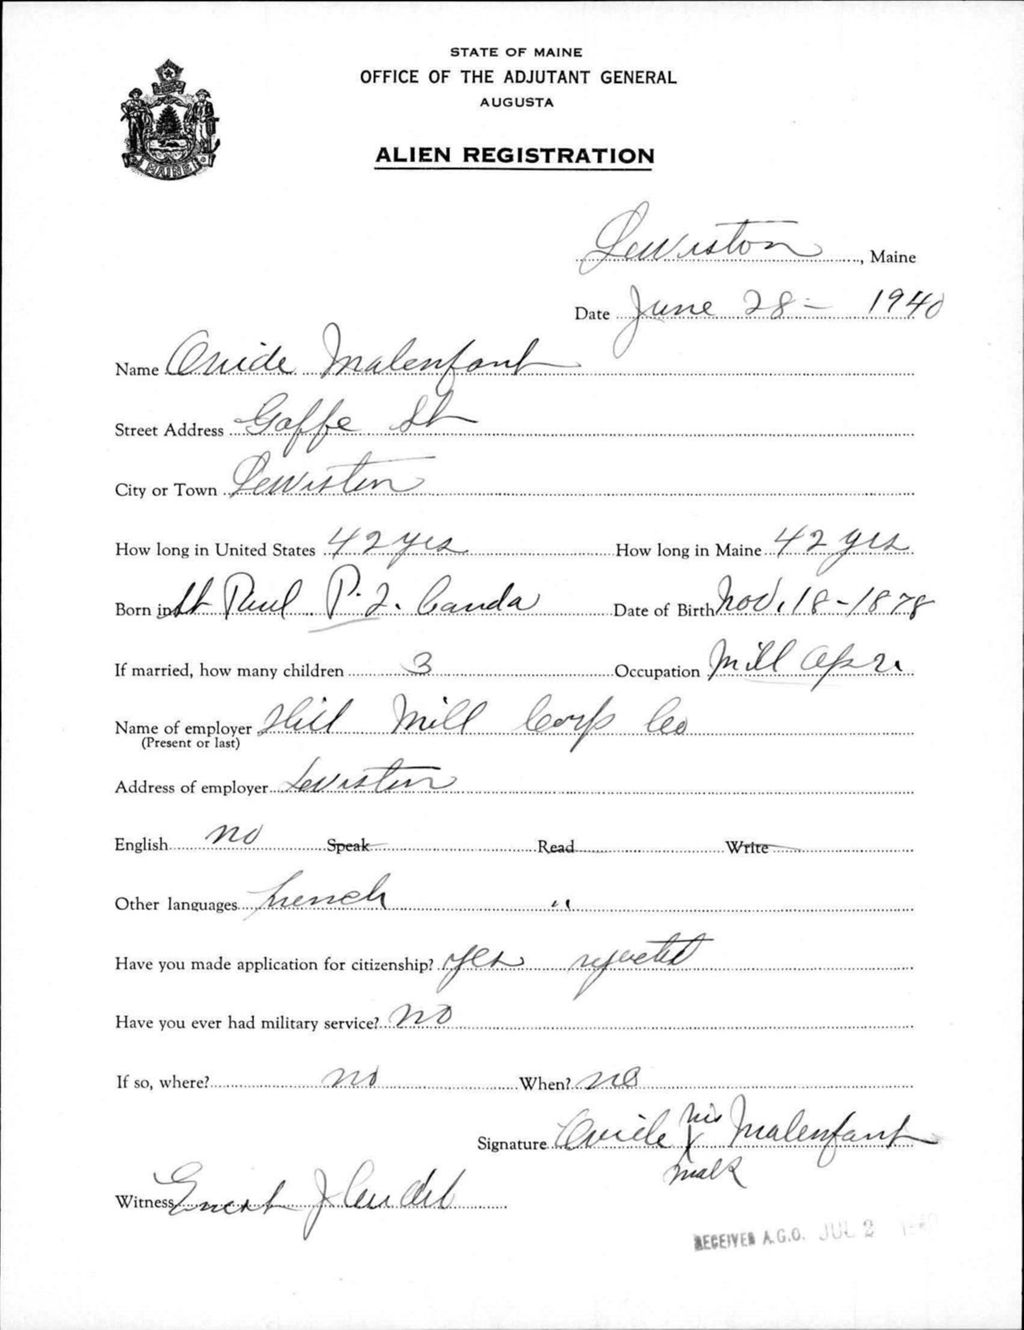 STATE OF MAINE
OFFICE OF THE ADJUTANT GENERAL
AUGUSTA
ALIEN REGISTRATION
MAINE
Lewiston, Maine
Date June 28 - 1940
Name Ovide Malenfant
Street Address Goffe St
City or Town Lewiston
How long in United States 42 yrs How long in Maine 42 yrs
Born in St Paul P.Q. Canda Date of Birth Nov. 18-1878
If married, how many children 3 Occupation Mill Opr.
Name of employer Hill Mill Corp Co
(Present or last)
Address of employer Lewiston
English no Speak Read Write
Other languages french "
Have you made application for citizenship? yes rejected
Have you ever had military service? no
If so, where? no When? no
Signature Ovide his X mark Malenfant
Witness Ernest J
RECEIVED A.G.O. JUL 2